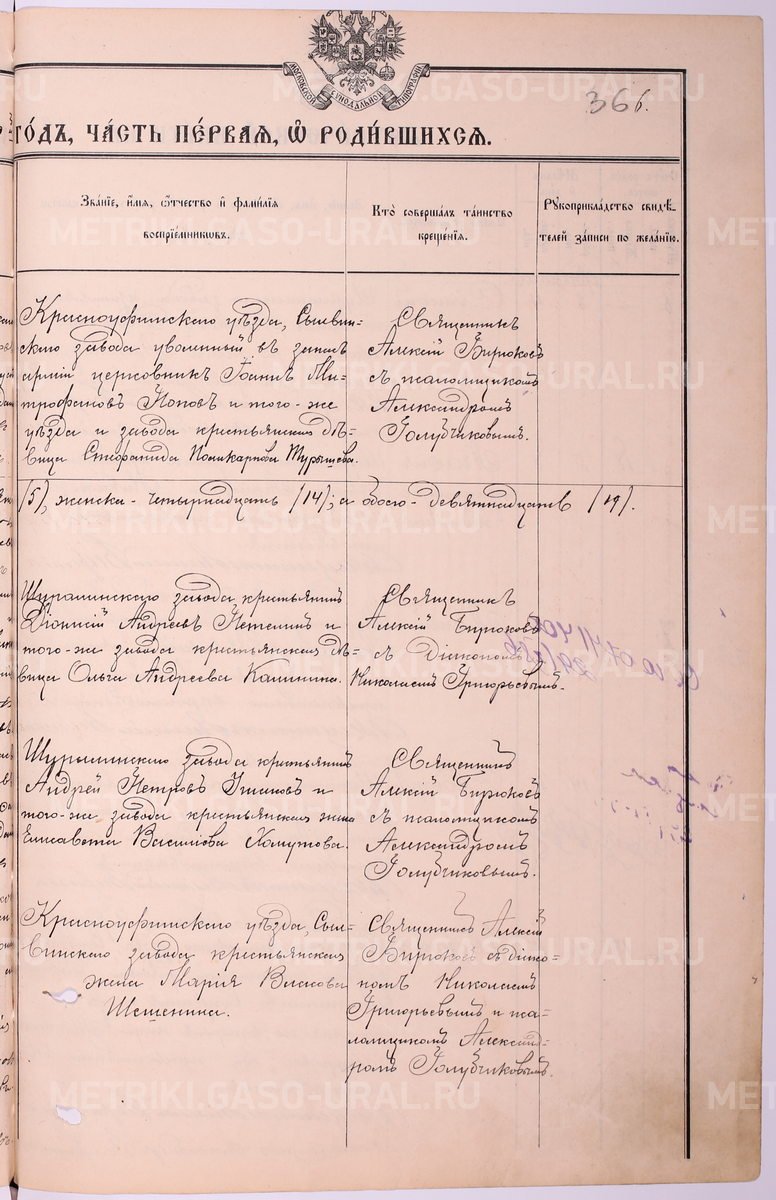 366.
ГО́ДЪ, ЧА́СТЬ ПЕ́РВАѦ, Ѿ РОДИ́ВШИХСѦ.
Зва́нїе, и҆́мѧ, ѻ҆́тчество и҆ фами́лїѧ
воспрїе́мникѡвъ.
Кто̀ соверша́лъ та́инство
креще́нїѧ.
Рꙋкоприкла́дство свидѣ́-
телей за́писи по жела́нїю.
Красноуфимскаго уѣзда, Сылвин-
скаго завода уволенный въ запасъ
арміи церковникъ Іоаннъ Ми-
трофановъ Поповъ и того-же
уѣзда и завода крестьянская дѣ-
вица Стефанида Поликарпова Турышева.
Священникъ
Алексій Бирюковъ
съ псаломщикомъ
Александромъ
Голубчиковымъ.
/5/, женска - четырнадцать /14/; а обоего - девятнадцать /19/.
Шуралинскаго завода крестьянинъ
Діонисій Андреевъ и
того-же завода крестьянская дѣ-
вица Ольга Андреева Калинина.
Священникъ
Алексій Бирюковъ
съ Діакономъ
Николаемъ Григорьевымъ.
завода крестьянинъ
Андрей Петровъ Ушаковъ и
того-же завода крестьянская жена
Елисавета Василіева Хомутова.
Священникъ
Алексій Бирюковъ
съ псаломщикомъ
Александромъ
Голубчиковымъ.
Красноуфимскаго уѣзда, Сыл-
винскаго завода крестьянская
жена Марія Власова
Шешенина.
Священникъ Алексій
Бирюковъ съ діако-
номъ Николаемъ
Григорьевымъ и пса-
ломщикомъ Александ-
ромъ Голубчиковымъ.
METRIKI.GASO-URAL.RU